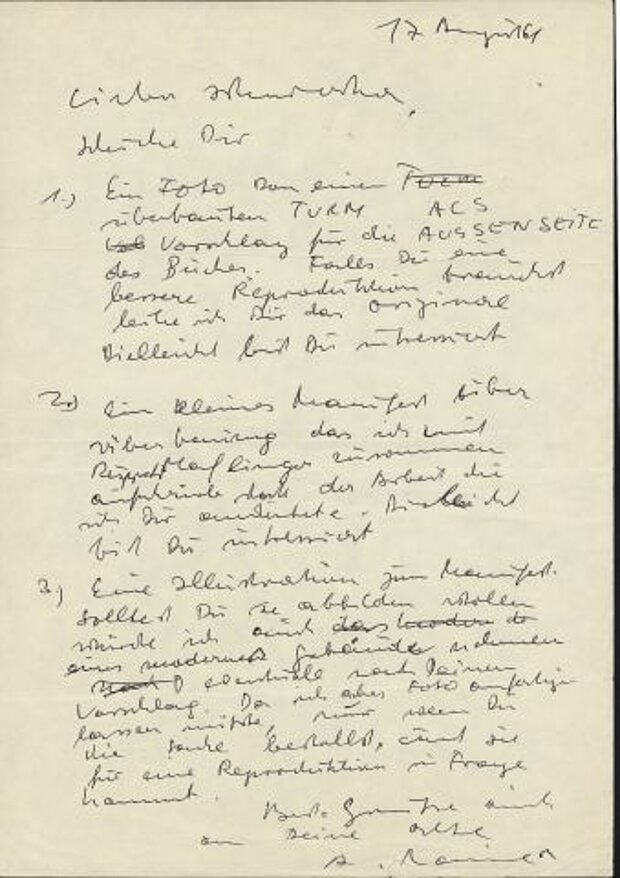 17 August 61
Lieber
schicke Dir
1.) Ein Foto von einem Turm
überbauten TURM ALS
Vorschlag für die AUSSENSEITE
des Buches. Falls Du eine
bessere Reproduktion brauchst
leihe ich Dir das Original
Vielleicht bist Du interessiert
2.) ein kleines Manifest über
überbauung das ich mit
zusammen
der Arbeit die
ich Dir andeutete. Vielleicht
bist Du interessiert
3.) Eine Illustration zum Manifest.
Solltest Du sie abbilden wollen
würde ich auch
eines modernen Gebäudes nehmen
eventuell nach Deinem
Vorschlag. Da ich aber Foto anfertigen
lassen müsste, nur wenn Du
die Sache bestellst, und sie
für eine Reproduktion in Frage
kommt.
Beste Grüsse auch
an Deine
A. Rainer